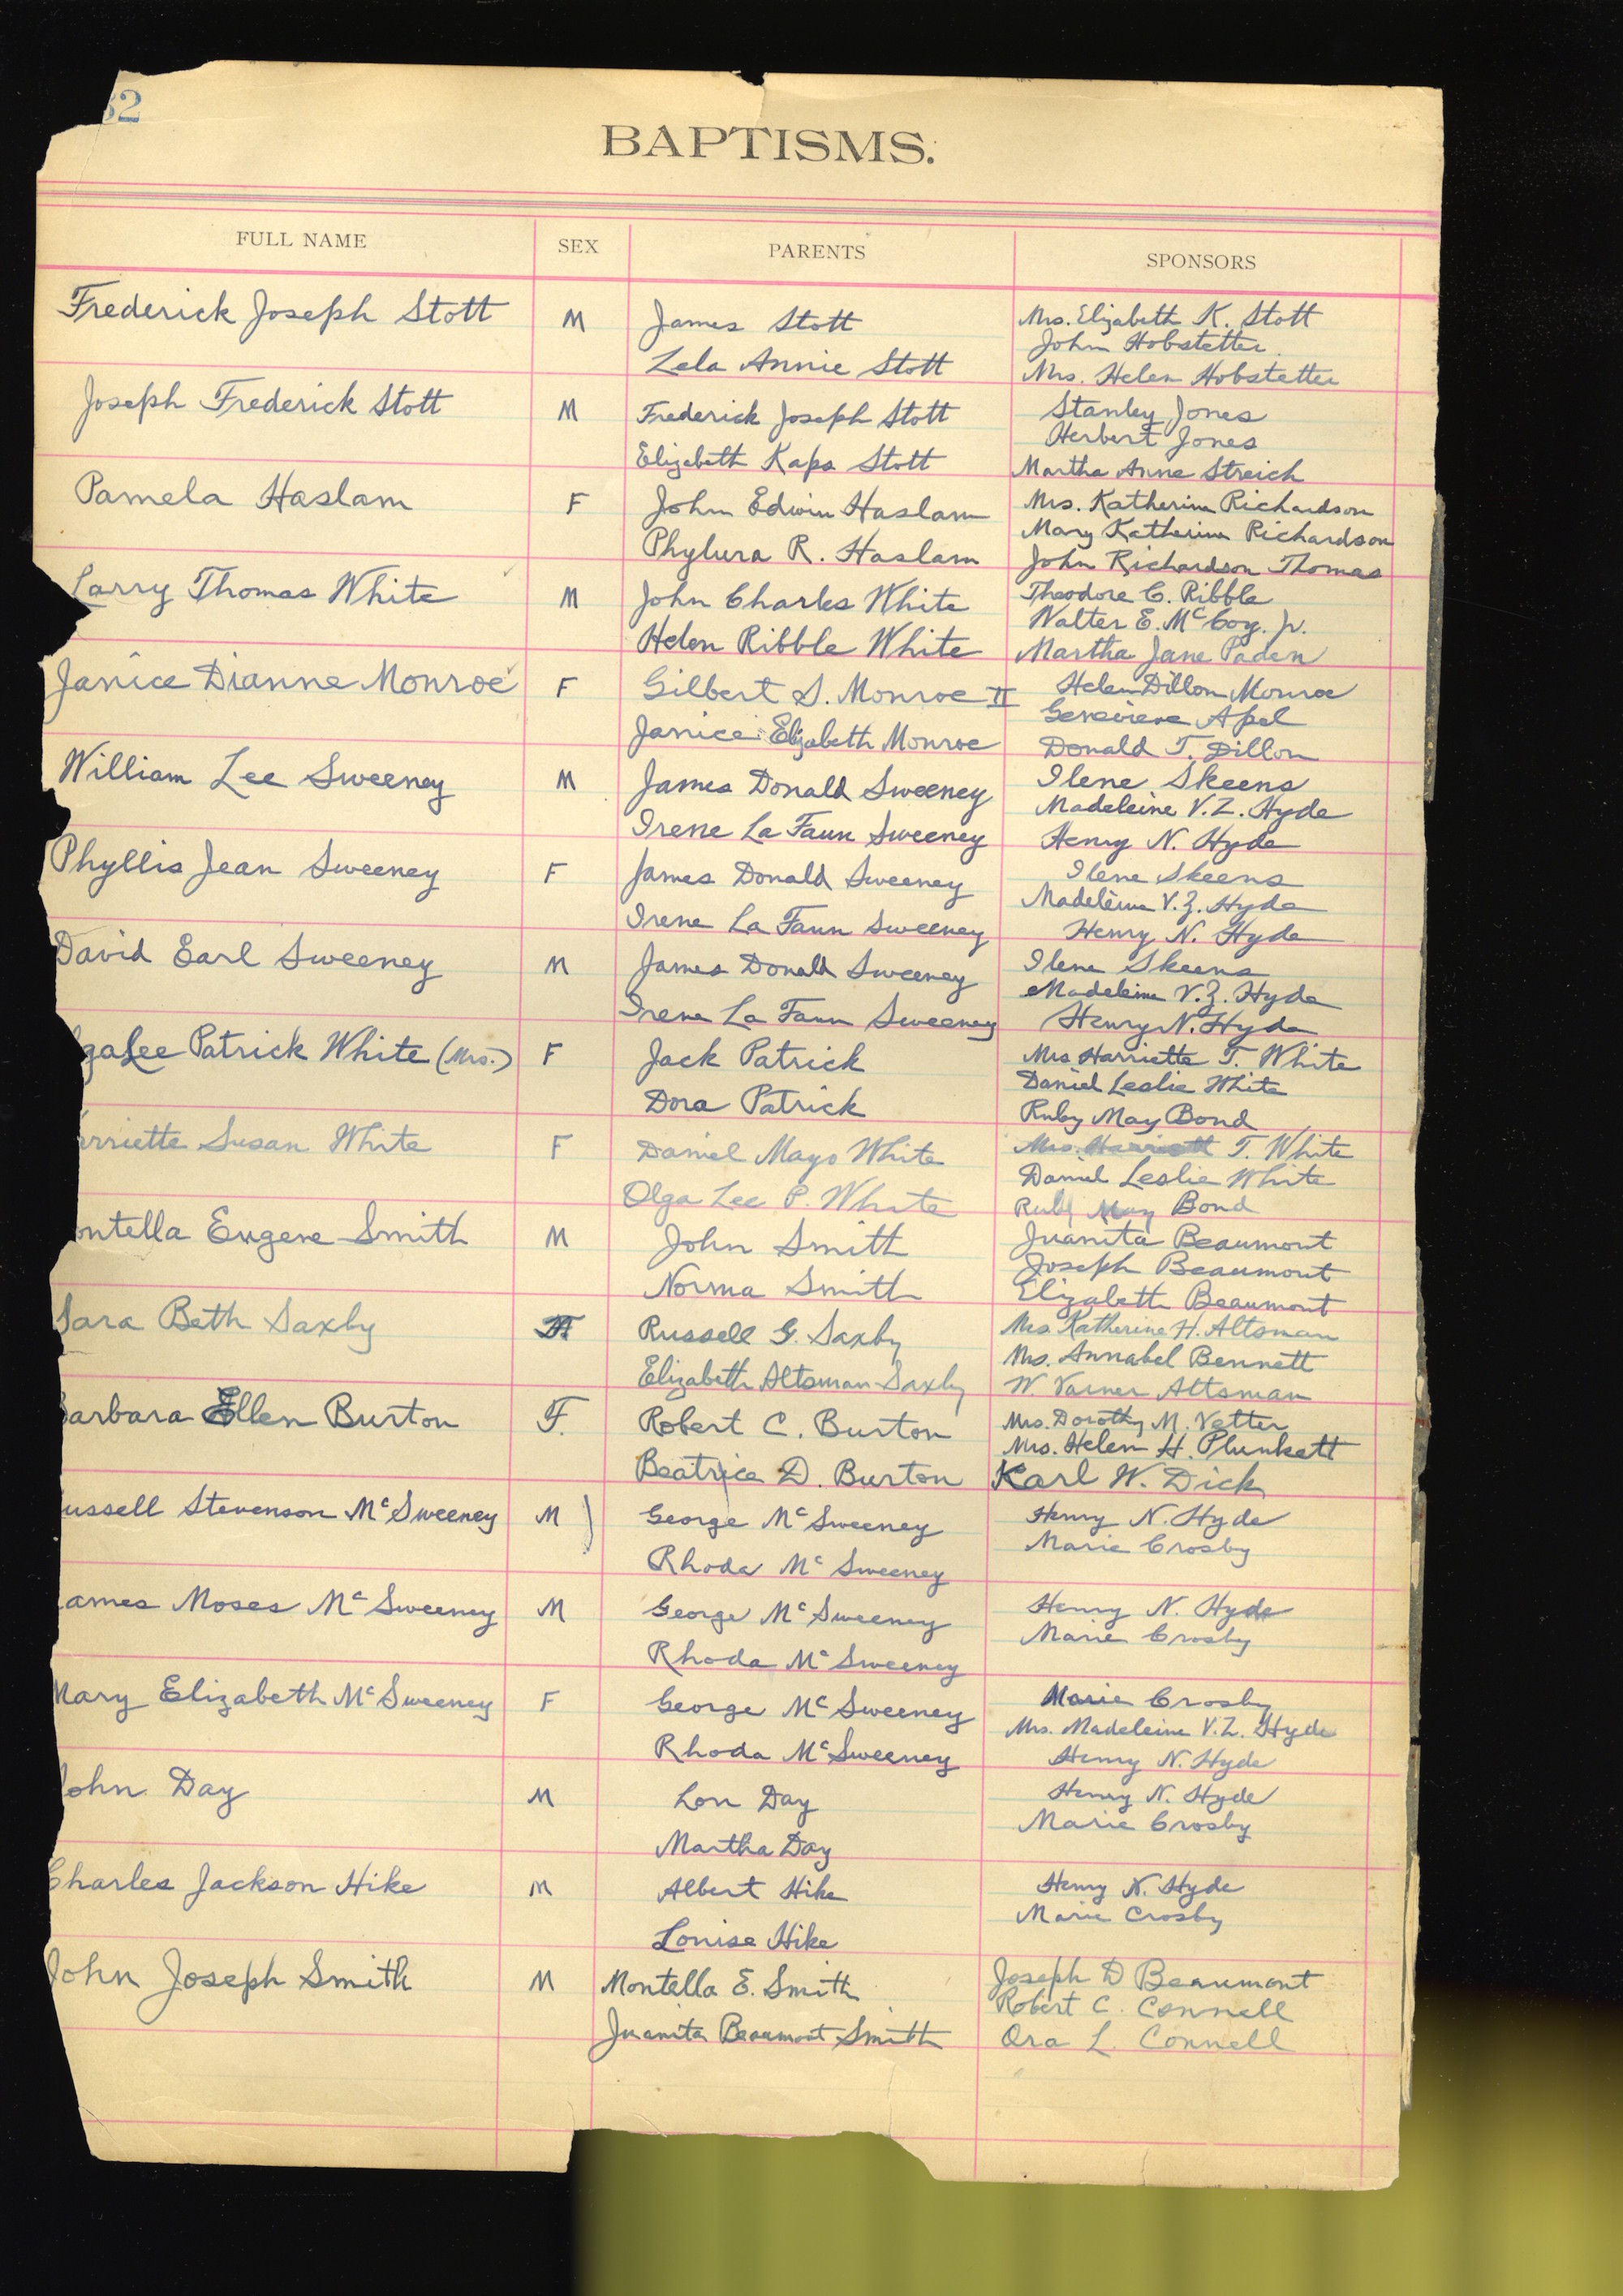 32
BAPTISMS.
FULL NAME SEX PARENTS SPONSORS
Frederick Joseph Stott M James Stott Mrs. Elizabeth K. Stott
John Hobstetter
Lela Annie Stott Mrs. Helen Hobstetter
Joseph Frederick Stott M Frederick Joseph Stott Stanley Jones
Herbert Jones
Elizabeth Kaps Stott Martha Anne Streich
Pamela Haslam F John Edwin Haslam Mrs. Katherine Richardson
Mary Katherine Richardson
Phylura R. Haslam John Richardson Thomas
Larry Thomas White M John Charles White Theodore C. Ribble
Walter E. McCoy. Jr.
Helen Ribble White Martha Jane Paden
Janice Dianne Monroe F Gilbert S. Monroe II Helen Dillon Monroe
Genevieve Apel
Janice Elizabeth Monroe Donald T. Dillon
William Lee Sweeney M James Donald Sweeney Ilene Skeens
Madeleine V.Z. Hyde
Irene La Faun Sweeney Henry N. Hyde
Phyllis Jean Sweeney F James Donald Sweeney Ilene Skeens
Madeleine V.Z. Hyde
Irene La Faun Sweeney Henry N. Hyde
David Earl Sweeney M James Donald Sweeney Ilene Skeens
Madeleine V.Z. Hyde
Irene La Faun Sweeney Henry N. Hyde
lgaLee Patrick White (Mrs.) F Jack Patrick Mrs Harriette T. White
Daniel Leslie White
Dora Patrick Ruby May Bond
rriette Susan White F Daniel Mayo White Mrs. Harriett T. White
Daniel Leslie White
Olga Lee P. White Ruby May Bond
ontella Eugene Smith M John Smith Juanita Beaumont
Joseph Beaumont
Norma Smith Elizabeth Beaumont
Sara Beth Saxby F Russell G. Saxby Mrs Katherine H. Altsman
Mrs. Annabel Bennett
Elizabeth Altsman Saxby W Varner Altsman
Barbara Ellen Burton F. Robert C. Burton Mrs. Dorothy M. Vetter
Mrs. Helen H. Plunkett
Beatrice D. Burton Karl W. Dick
ussell Stevenson McSweeney M George McSweeney Henry N. Hyde
Marie Crosby
Rhoda McSweeney
ames Moses McSweeney M George McSweeney Henry N. Hyde
Marie Crosby
Rhoda McSweeney
Mary Elizabeth McSweeney F George McSweeney Marie Crosby
Mrs. Madeleine V.Z. Hyde
Rhoda McSweeney Henry N. Hyde
John Day M Lon Day Henry N. Hyde
Marie Crosby
Martha Day
Charles Jackson Hike M Albert Hike Henry N. Hyde
Marie Crosby
Louise Hike
John Joseph Smith M Montella E. Smith Joseph D Beaumont
Robert C. Connell
Juanita Beaumont Smith Ora L. Connell